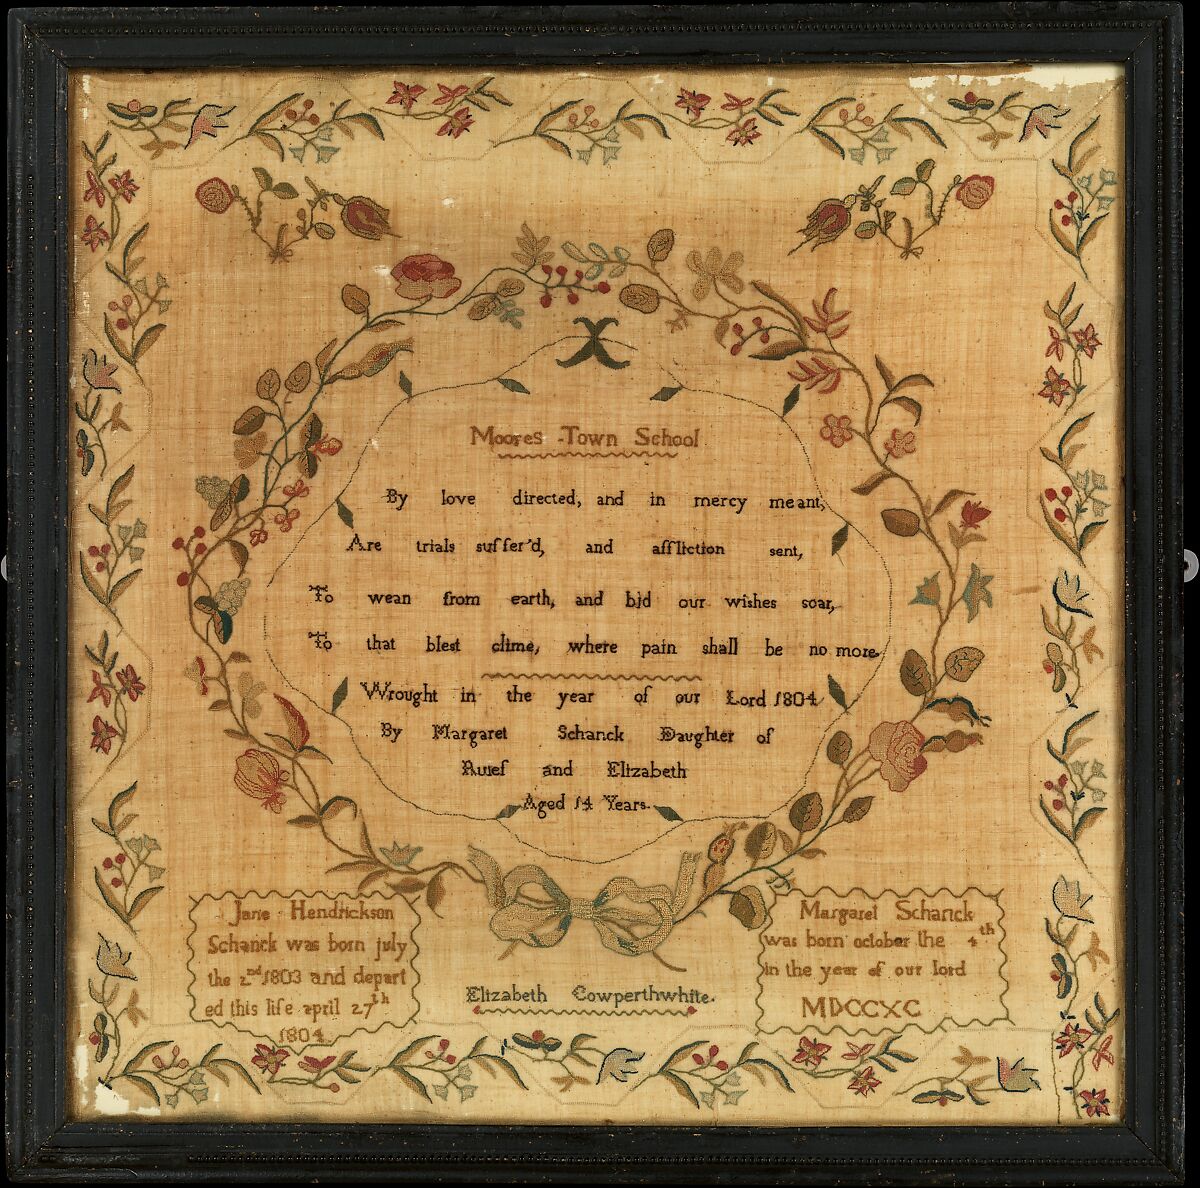 Moores-Town School
By love directed, and in mercy meant,
Are trials suffer'd, and affliction sent,
To wean from earth, and bid our wishes soar,
To that blest clime, where pain shall be no more.
Wrought in the year of our Lord 1804
By Margaret Schanck Daughter of
Rulef and Elizabeth
Aged 14 Years.
Jane Hendrickson
Schanck was born july
the 2nd 1803 and depart
ed this life april 27th
1804
Elizabeth Cowperthwhite.
Margaret Schanck
was born october the 4th
in the year of our lord
MDCCXC